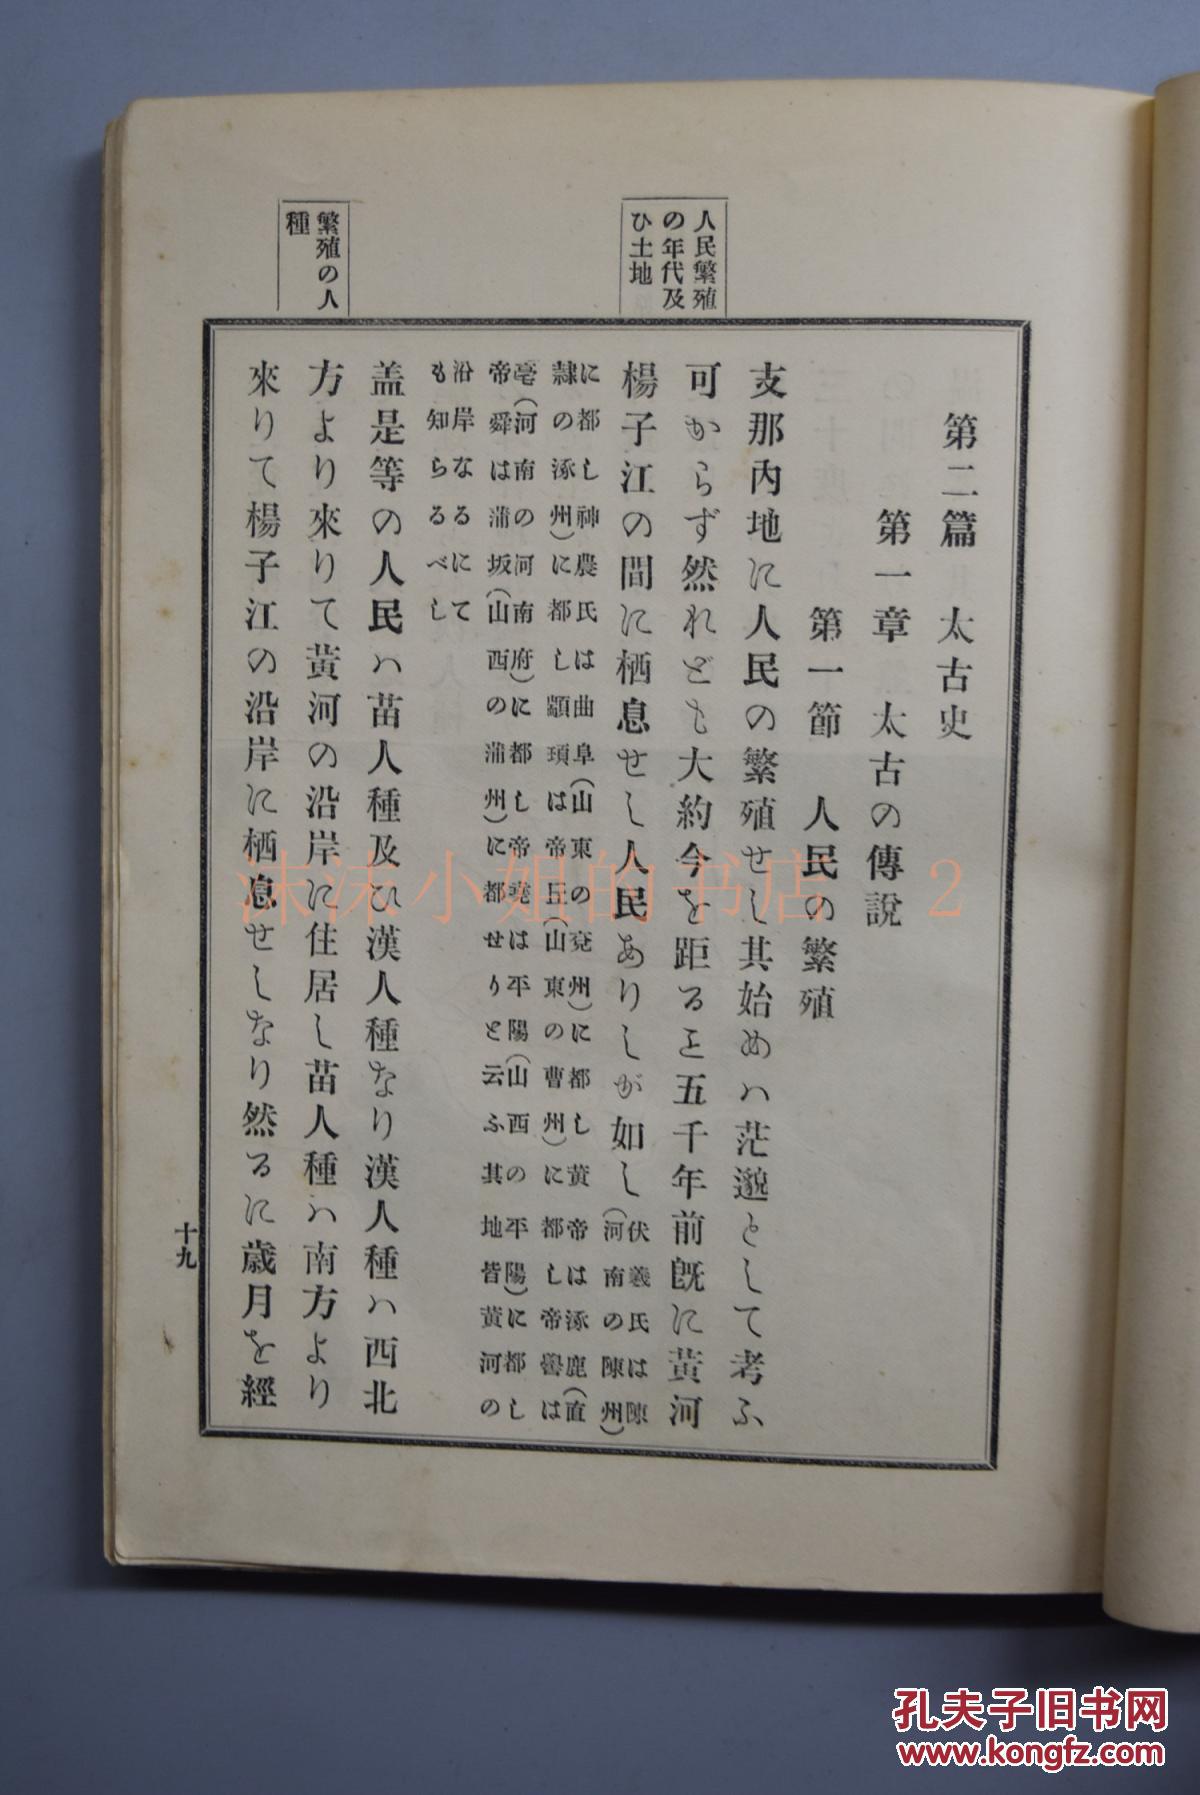 人民繁殖
の年代及
ひ土地
繁殖の人
種
第二篇　太古史
第一章　太古の傳說
第一節　人民の繁殖
支那內地に人民の繁殖せし其始めハ茫邈として考ふ
可からず然れども大約今を距るヿ五千年前既に黃河
楊子江の間に栖息せし人民ありしが如し(伏羲氏は陳
(河南の陳州)
に都し神農氏は曲阜(山東の兗州)に都し黃帝は涿鹿(直
隸の涿州)に都し顓頊は帝丘(山東の曹州)に都し帝嚳は
亳(河南の河南府)に都し帝堯は平陽(山西の平陽)に都し
帝舜は蒲坂(山西の蒲州)に都せりと云ふ其地皆黃河の
沿岸なるにて
も知らるべし
盖是等の人民ハ苗人種及ひ漢人種なり漢人種ハ西北
方より來りて黃河の沿岸に住居し苗人種ハ南方より
來りて楊子江の沿岸に栖息せしなり然るに歲月を經
十九
沫沫小姐的书店 2
孔夫子旧书网
www.kongfz.com